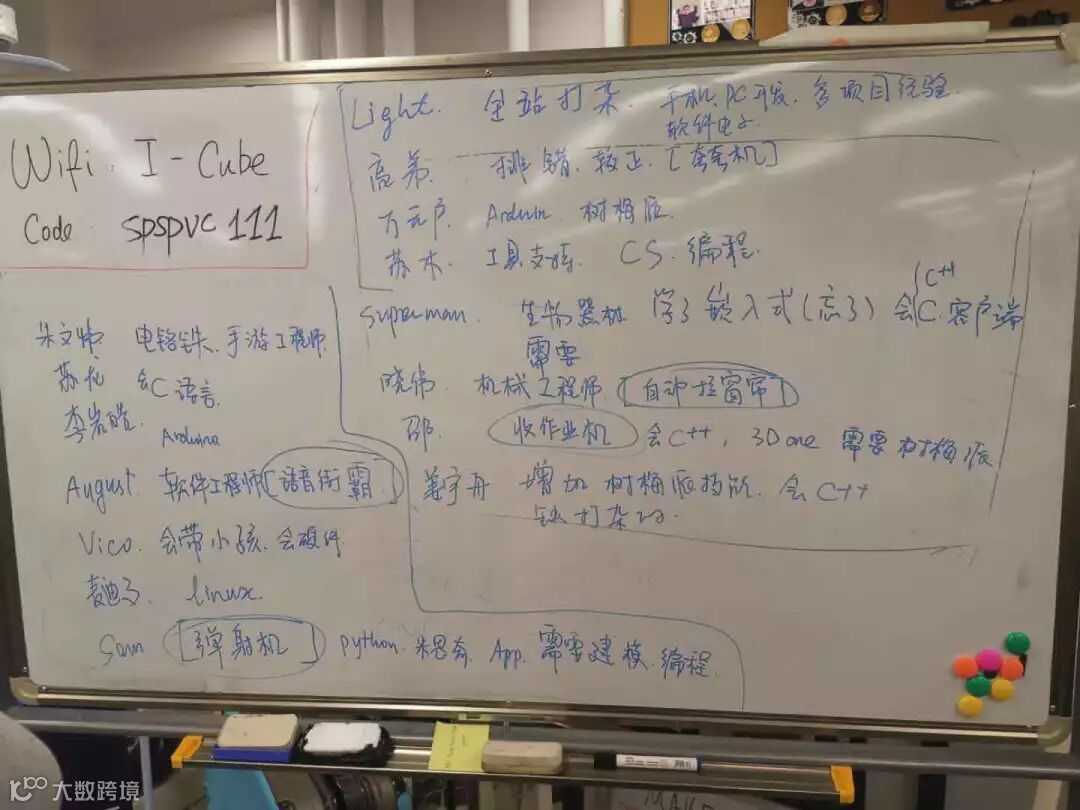 Wifi: I-Cube
Code: SPSPVC111
Light. 全站打杂. 手机、PC开发. 多项目经验.
软件电子.
高弟. 排错. 较正. [套套机]
万元户. Arduin. 树梅派.
苏木. 工具支持. CS. 编程.
superman. 生物器械 学了嵌入式(忘了) 会C. 客户端
C++
需要
晓伟. 机械工程师 [自动拉窗帘]
邵. 收作业机 会C++, 3D one 需要树梅派
姜宇舟 增加树梅派技能. 会C++
缺打杂的.
朱文帅 电铬铁、手游工程师.
苏龙 会C语言.
李岩皓. Arduino
August. 软件工程师 [语音街霸]
Vico. 会带小孩. 会硬件
麦迪了. linux.
Sam [弹射机] python. 朱思奇. App. 需要建模. 编程.
大数跨境